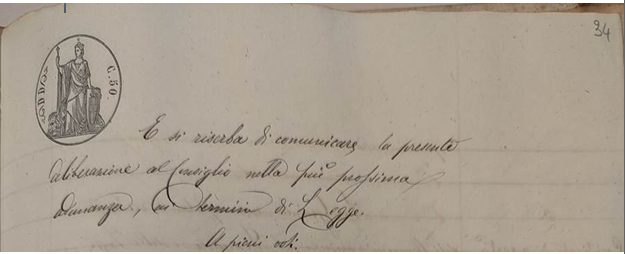 34
C. 50.
E si riserba di comunicare la presente
deliberazione al Consiglio nella più prossima
adunanza, in termini di Legge.
A pieni voti.